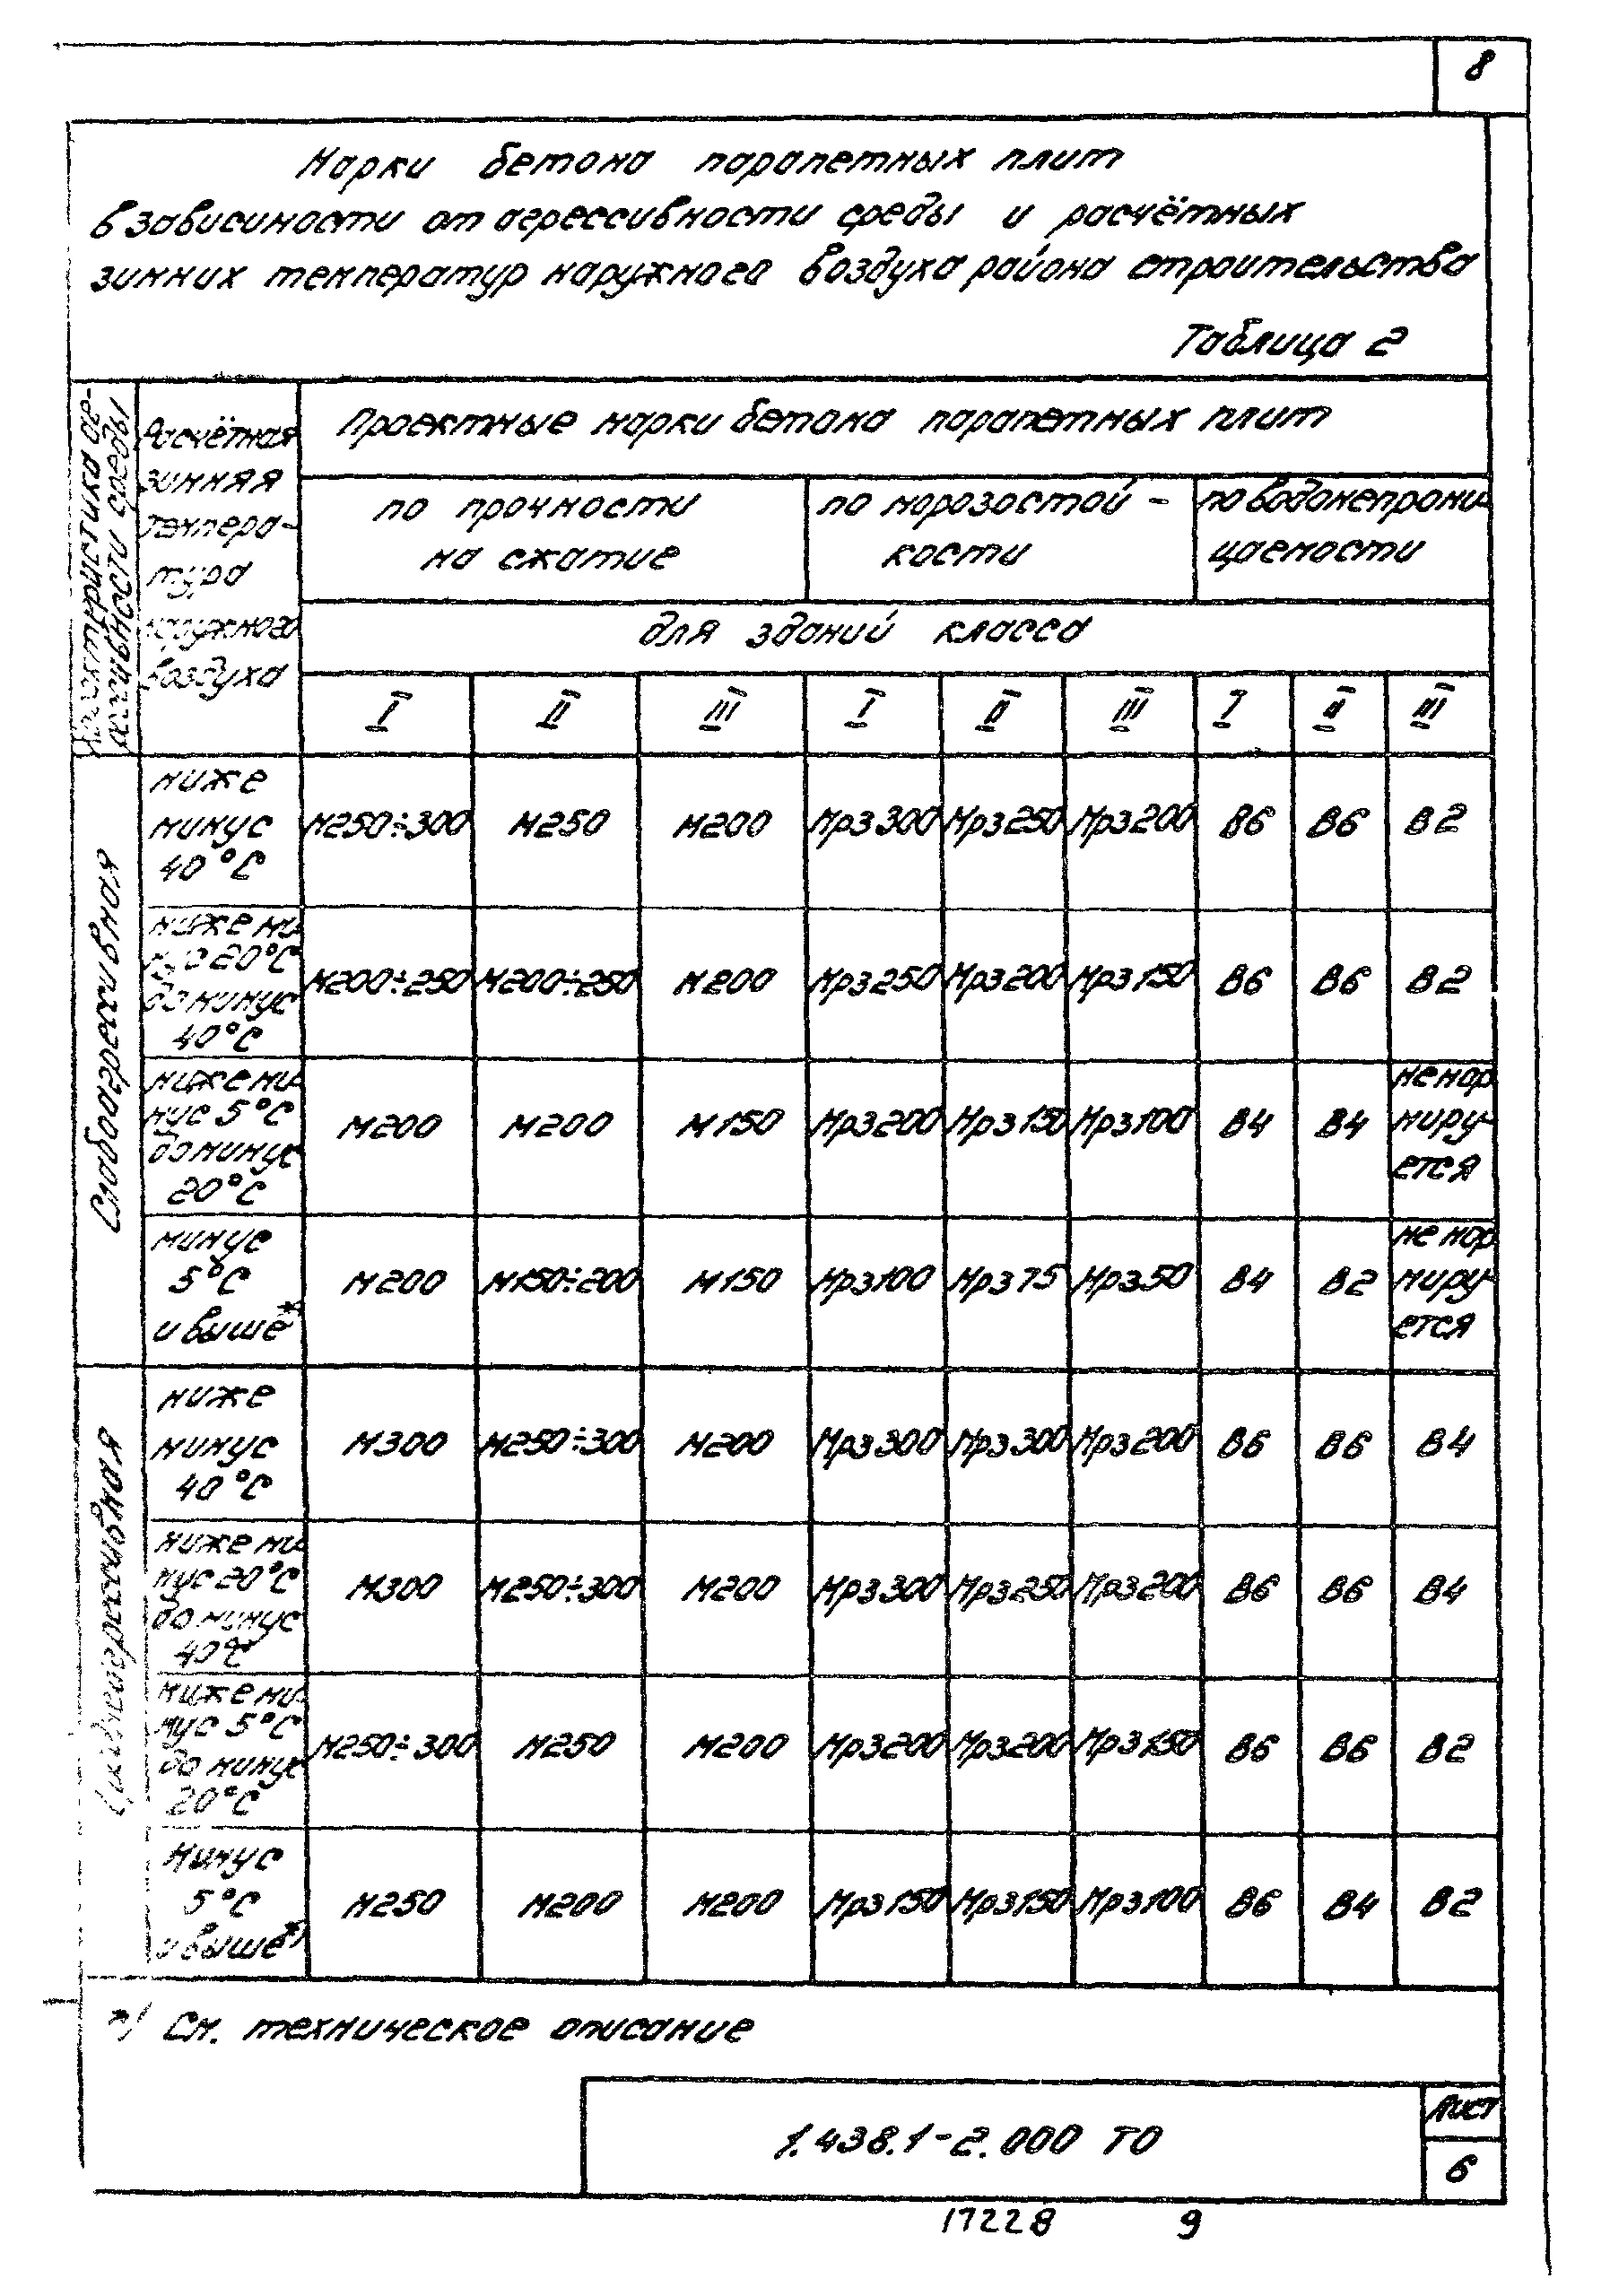 8
Марки бетона парапетных плит
в зависимости от агрессивности среды и расчётных
зимних температур наружного воздуха района строительства
Таблица 2
Характеристика аг-
рессивности среды
Расчётная
зимняя
темпера-
тура
наружного
воздуха
Проектные марки бетона парапетных плит
по прочности
на сжатие
по морозостой-
кости
по водонепрони-
цаемости
для зданий класса
I II III I II III I II III
Слабоагрессивная
ниже
минус
40°С
М250÷300 М250 М200 Мрз300 Мрз250 Мрз200 В6 В6 В2
ниже ми-
нус 20°С
до минус
40°С
М200÷250 М200÷250 М200 Мрз250 Мрз200 Мрз150 В6 В6 В2
ниже ми-
нус 5°С
до минус
20°С
М200 М200 М150 Мрз200 Мрз150 Мрз100 В4 В4 не нор
миру-
ется
минус
5°С
и выше*)
М200 М150÷200 М150 Мрз100 Мрз75 Мрз50 В4 В2 не нор
миру-
ется
Среднеагрессивная
ниже
минус
40°С
М300 М250÷300 М200 Мрз300 Мрз300 Мрз200 В6 В6 В4
ниже ми-
нус 20°С
до минус
40°С
М300 М250÷300 М200 Мрз300 Мрз250 Мрз200 В6 В6 В4
ниже ми-
нус 5°С
до минус
20°С
М250÷300 М250 М200 Мрз200 Мрз200 Мрз150 В6 В6 В2
Минус
5°С
и выше*)
М250 М200 М200 Мрз150 Мрз150 Мрз100 В6 В4 В2
*) См. техническое описание
1.438.1-2.000 ТО
Лист
6
17228 9